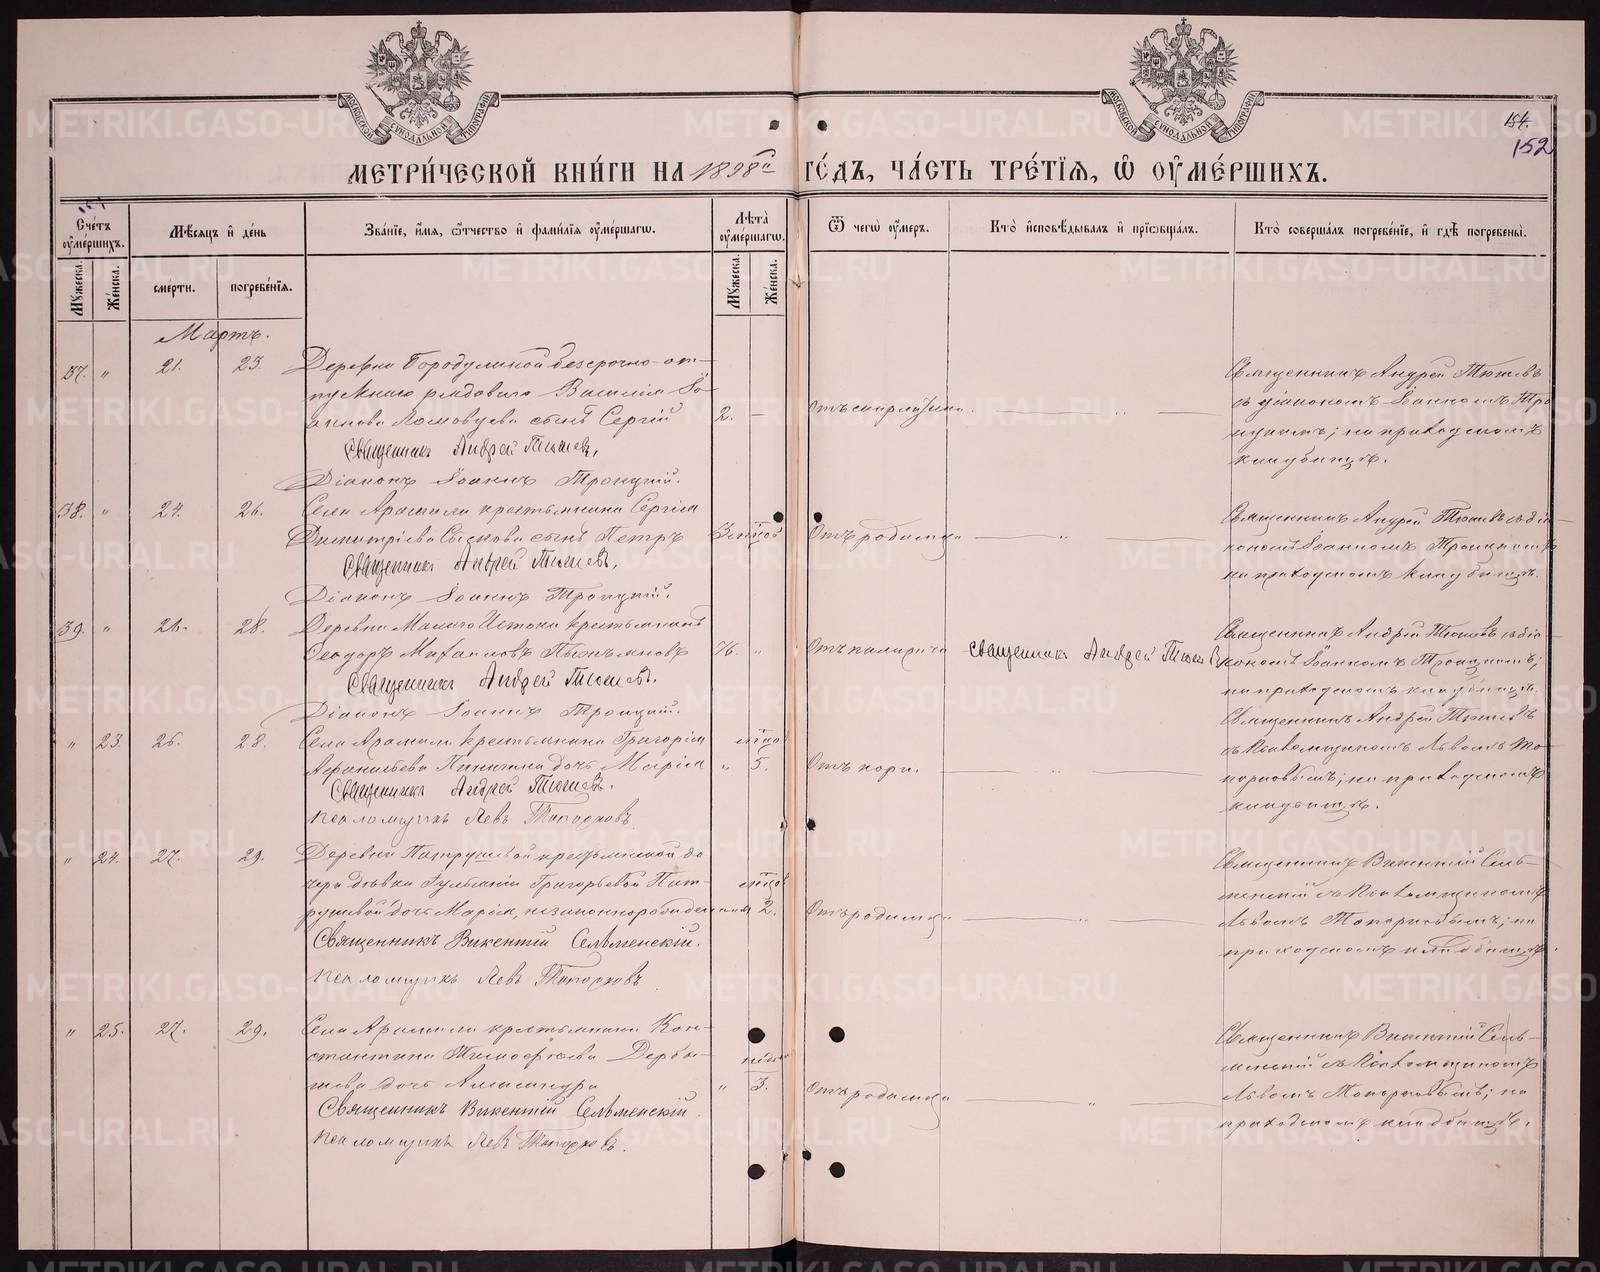 МОСКОВСКОЙ СѴНОДАЛЬНОЙ ТИПОГРАФІИ
МОСКОВСКОЙ СѴНОДАЛЬНОЙ ТИПОГРАФІИ
154.
152
МЕТРИ́ЧЕСКОЙ КНИ́ГИ НА 1898 ГО́ДЪ, ЧА́СТЬ ТРЕ́ТЇѦ, Ѽ ОУ҆МЕ́РШИХЪ.
Сче́тъ оу҆ме́ршихъ.
Мѣ́сяцъ и҆ де́нь
Зва́нїе, и҆́мѧ, ѻ҆́тчество и҆ фами́лїѧ оу҆ме́ршагѡ.
Лѣ́та оу҆ме́ршагѡ.
Ѿ чегѡ̀ оу҆́меръ.
Кто̀ и҆сповѣ́дывалъ и҆ прїѡбща́лъ.
Кто̀ соверша́лъ погребе́нїе, и҆ гдѣ̀ погребены̀.
Мꙋ́жеска. Же́нска.
сме́рти. погребе́нїѧ.
Мꙋ́жеска. Же́нска.
Мартъ.
37. " 21. 23. Деревни Бородулиной безсрочно-от-
пускного рядового Василія Іо-
аннова Ломовцева сынъ Сергій 2. —
Священникъ Андрей Тюшевъ.
Діаконъ Іоаннъ Троицкій.
Отъ скарлатины. — " —
Священникъ Андрей Тюшевъ
съ діакономъ Іоанномъ Тро
ицкимъ; на приходскомъ
кладбищѣ.
38. " 24. 26. Села Арамили крестьянина Сергія
Димитріева сынъ Петръ 3 мѣсяцовъ
Священникъ Андрей Тюшевъ.
Діаконъ Іоаннъ Троицкій.
Отъ родимца — " —
Священникъ Андрей Тюшевъ съ діа-
кономъ Іоанномъ Троицкимъ
на приходскомъ кладбищѣ.
39. " 26. 28. Деревни Малаго Истока крестьянинъ
Ѳеодоръ Михаиловъ Пьянковъ 76. "
Священникъ Андрей Тюшевъ.
Діаконъ Іоаннъ Троицкій.
Отъ паралича
Священникъ Андрей Тюшевъ
Священникъ Андрей Тюшевъ съ діа-
кономъ Іоанномъ Троицкимъ;
на приходскомъ кладбищѣ.
" 23. 26. 28. Села Арамили крестьянина Григорія мѣсяцовъ
Аѳанасьева дочь Марія " 5.
Священникъ Андрей Тюшевъ.
Псаломщикъ Левъ Топорковъ
Отъ кори. — " —
Священникъ Андрей Тюшевъ
съ псаломщикомъ Львомъ То-
порковымъ; на приходскомъ
кладбищѣ.
" 24. 27. 29. Деревни Патрушевой крестьянской до
чери дѣвки Іуліаніи Григорьевой Пат- мѣсяцовъ
рушевой дочь Марія, незаконнорожденная 2.
Священникъ Викентій Сельменскій.
Псаломщикъ Левъ Топорковъ
Отъ родимца — " —
Священникъ Викентій Сель-
менскій съ псаломщикомъ
Львомъ Топорковымъ; на
приходскомъ кладбищѣ.
" 25. 27. 29. Села Арамили крестьянина Кон-
стантина Тимоѳеева Дербы- недѣли
шева дочь Александра " 3.
Священникъ Викентій Сельменскій.
Псаломщикъ Левъ Топорковъ.
Отъ родимца — " —
Священникъ Викентій Сель-
менскій съ псаломщикомъ
Львомъ Топорковымъ; на
приходскомъ кладбищѣ.
METRIKI.GASO-URAL.RU